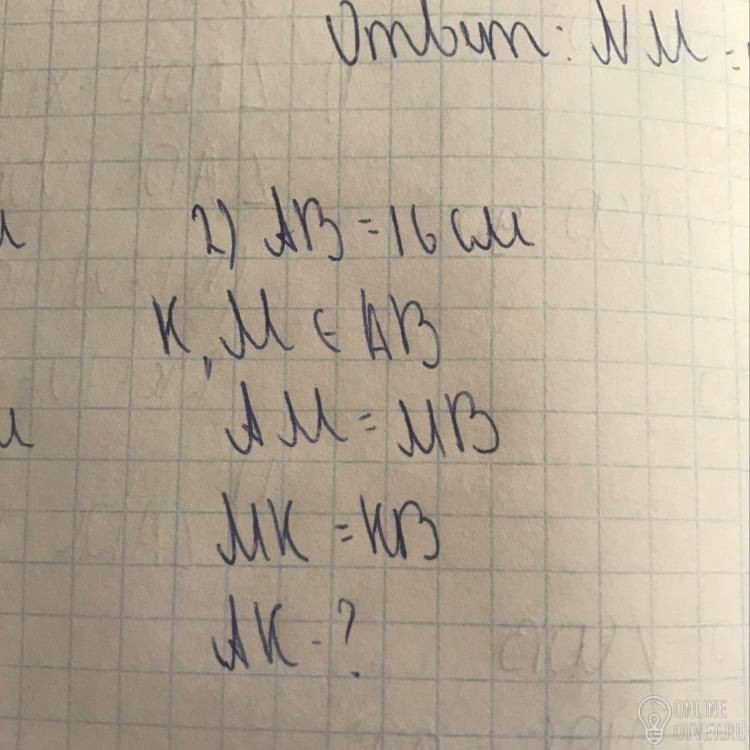 Ответ: NM =
2) AB = 16 см
K, M ∈ AB
AM = MB
MK = KB
AK - ?
ONLINE
OTVET.RU